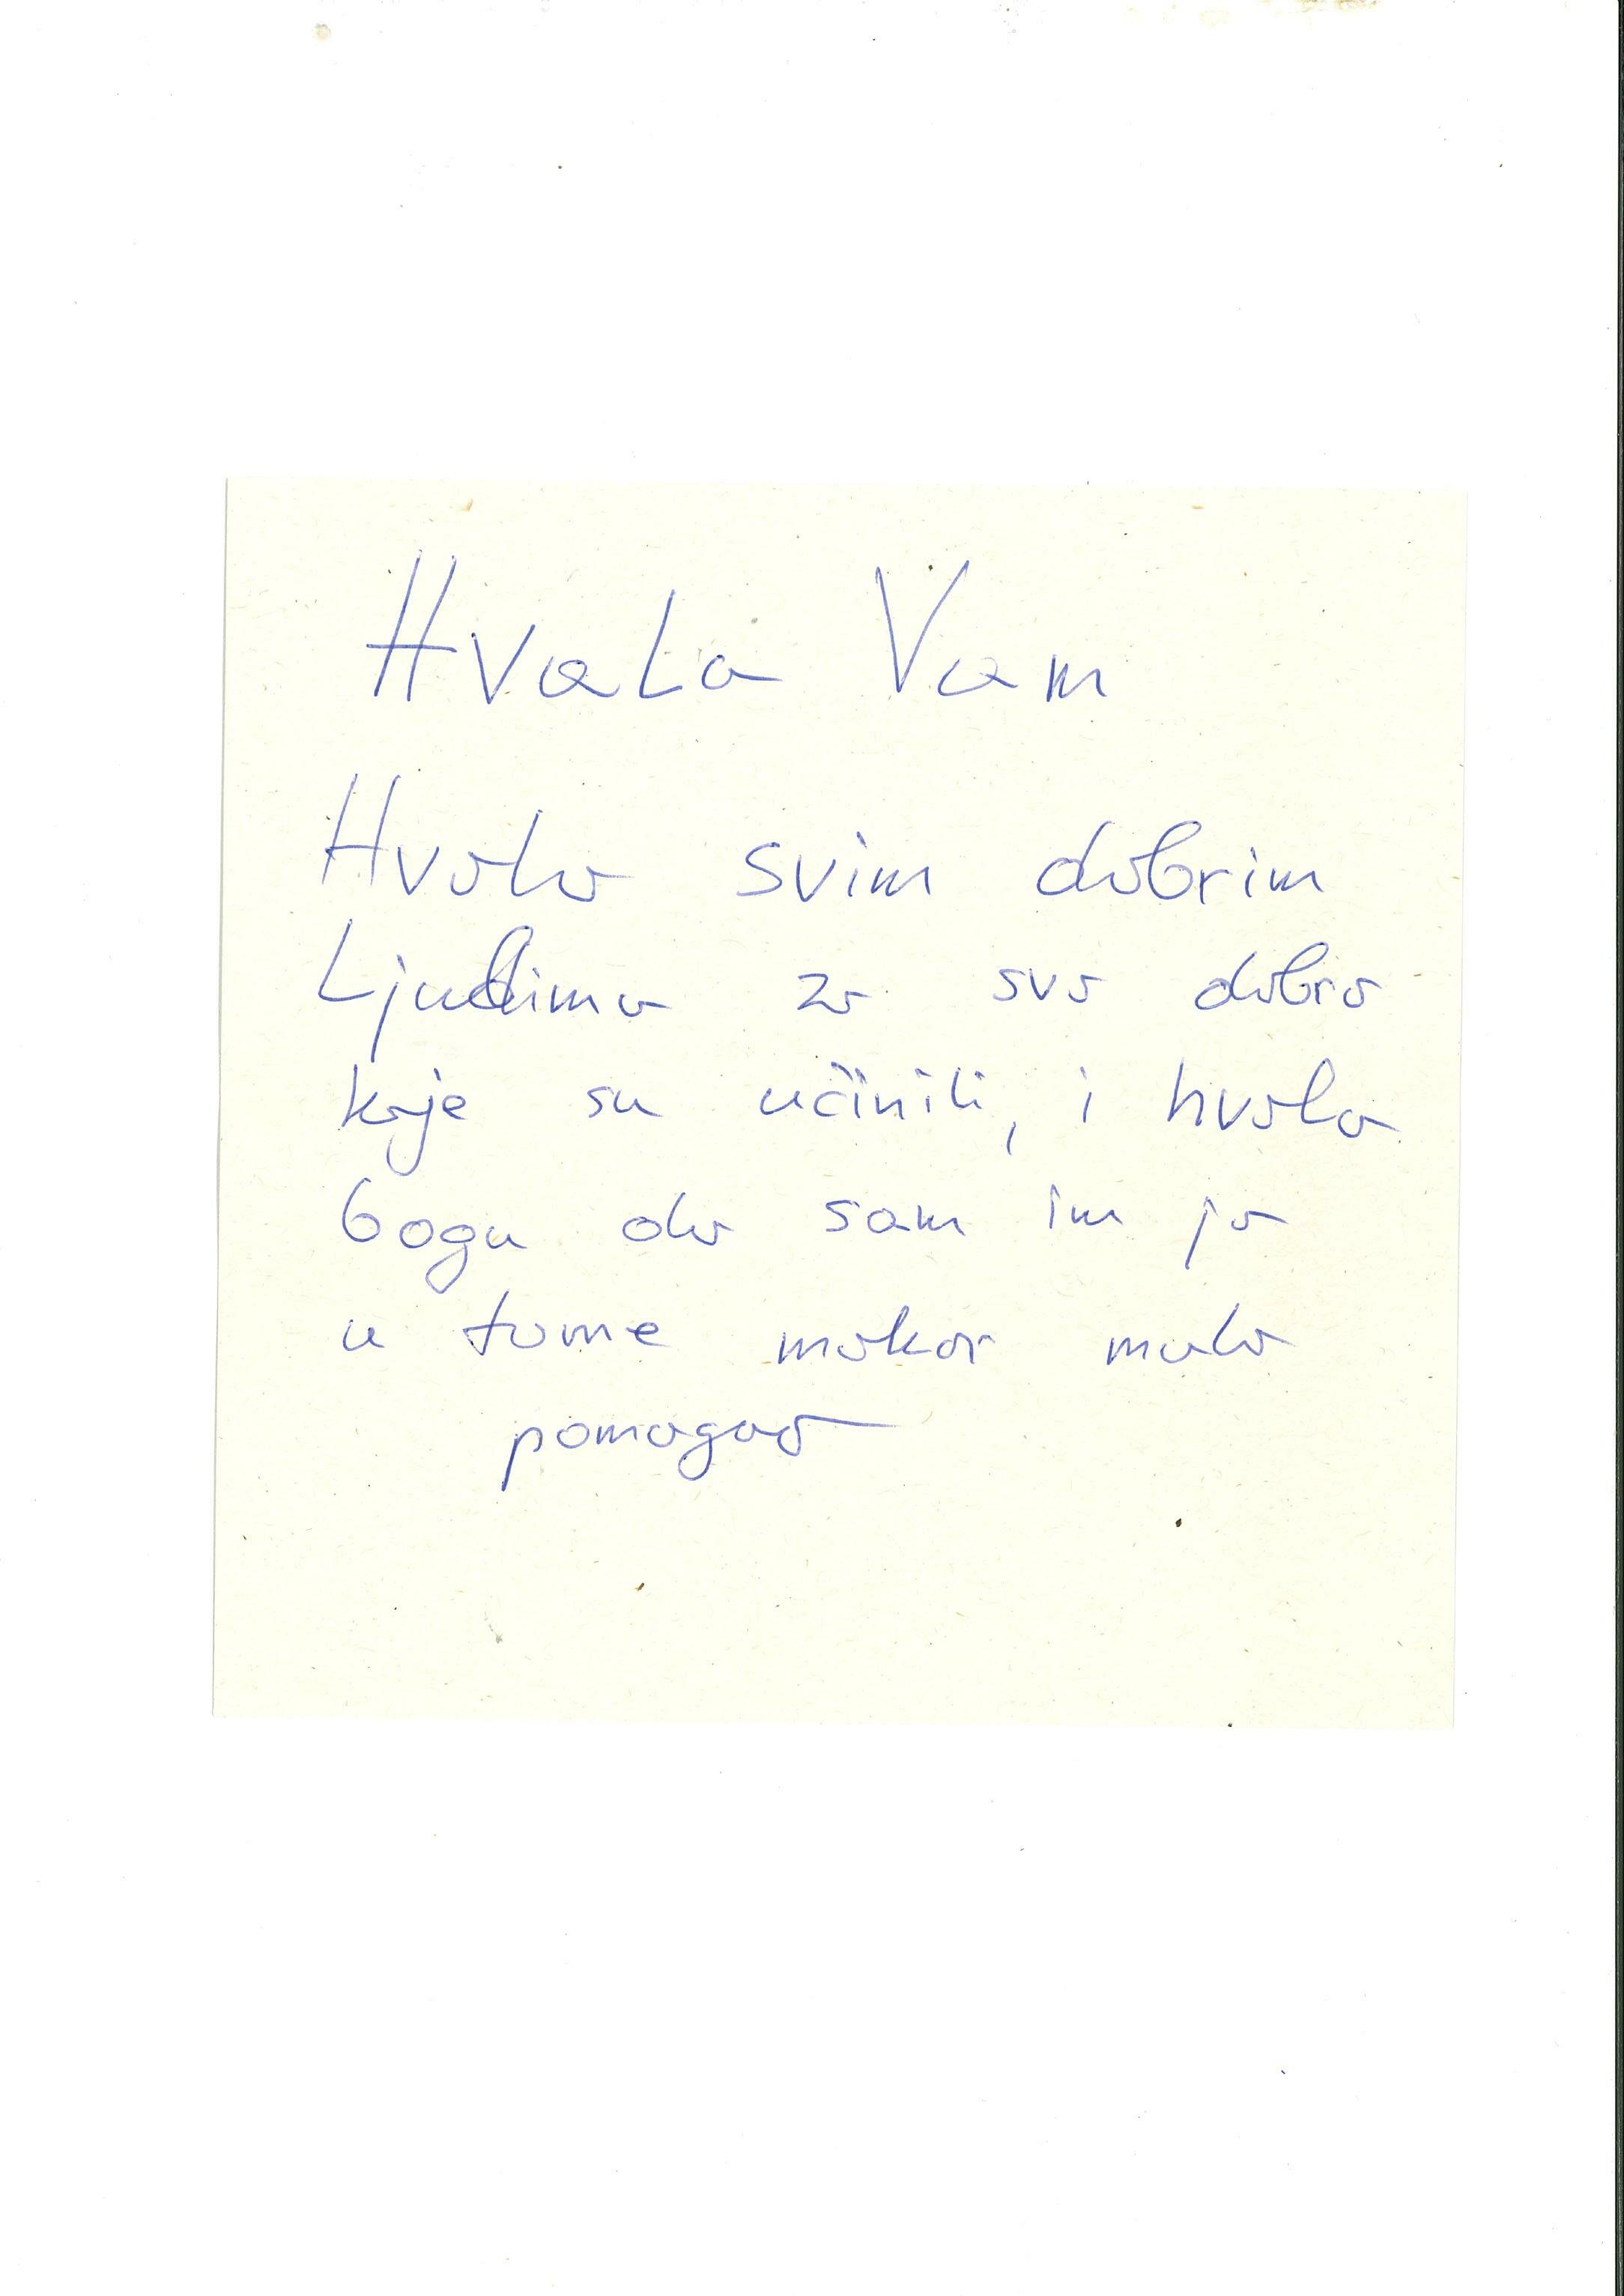 Hvala Vam
Hvala svim dobrim
Ljudima za svo dobro
koje su učinili, i hvala
bogu da sam im ja
u tome makar malo
pomogao